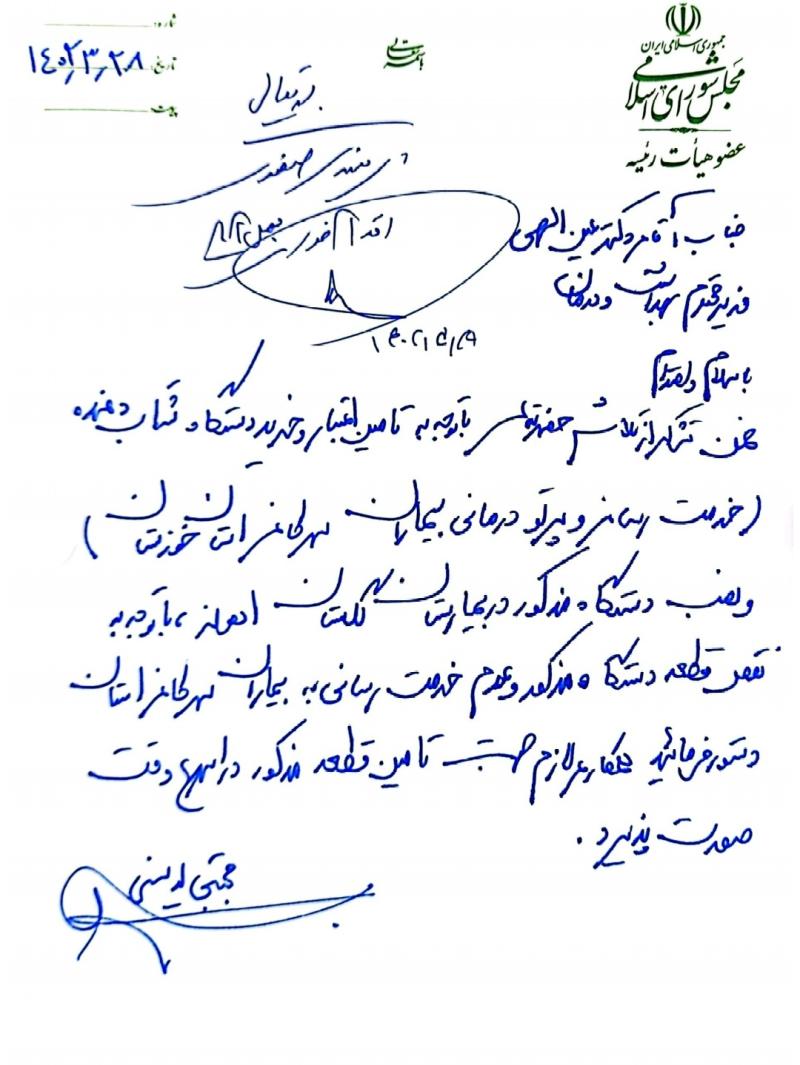 جمهوری اسلامی ایران
مجلس شورای اسلامی
عضو هیأت رئیسه
باسمه تعالی
شماره:
تاریخ: ۱۴۰۲/۳/۲۸
پیوست:
جناب آقای دکتر عین الهی
وزیر محترم بهداشت و درمان
با سلام و احترام
ضمن تشکر از تلاش حضرتعالی با توجه به تامین اعتبار و خرید دستگاه شتاب دهنده
(خدمت رسانی و پرتو درمانی بیماران سرطانی استان خوزستان)
و نصب دستگاه مذکور در بیمارستان گلستان اهواز، با توجه به
نقص قطعه دستگاه مذکور و عدم خدمت رسانی به بیماران سرطانی استان
دستور فرمائید همکاری لازم جهت تامین قطعه مذکور در اسرع وقت
صورت پذیرد.
مجتبی یوسفی